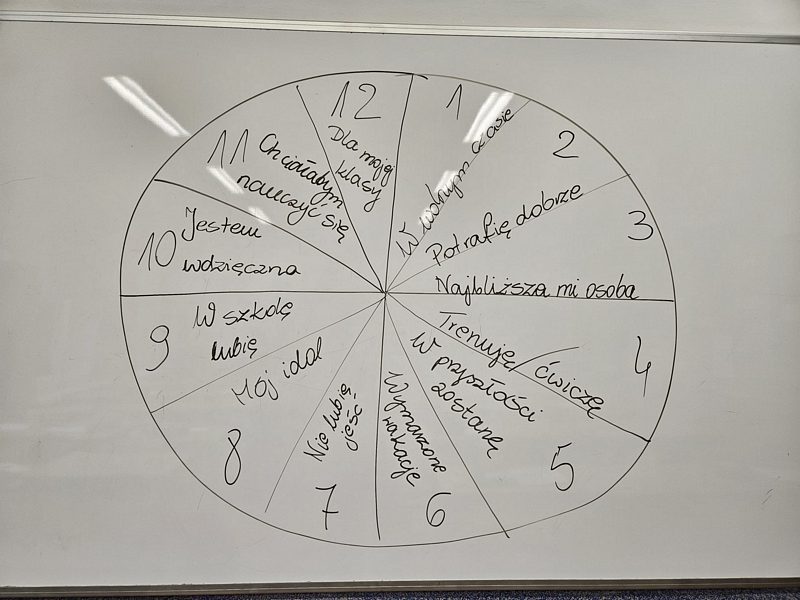 1
W wolnym czasie
2
Potrafię dobrze
3
Najbliższa mi osoba
4
Trenuję/ćwiczę
5
W przyszłości
zostanę
6
Wymarzone
wakacje
7
Nie lubię
jeść
8
Mój idol
9
W szkolę
lubię
10
Jestem
wdzięczna
11
Chciałabym
nauczyć się
12
Dla mojej
klasy